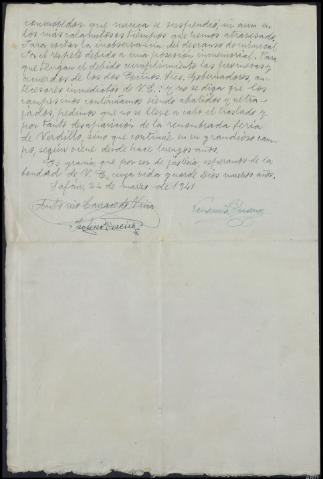 que nunca se suspendió, ni aun en
los más calamitosos tiempos que hemos atravesado.
Para evitar la inobservancia del descanso dominical.
Por el respeto debido a una posesión inmemorial. Para
que tengan el debido cumplimiento las promesas y
acuerdos de los dos Excmos. Sres. Gobernadores, an-
tecesores inmediatos de V.E.; y no se diga que los
campesinos continuamos siendo abatidos y ultra-
jados, pedimos que no se lleve a cabo el traslado y
por tanto desaparición de la renombrada feria
de Verdillo, sino que continúe en su grandioso cam-
po, según viene desde hace luengos años.
Es gracia que por ser de justicia, esperamos de la
bondad de V.E. cuya vida guarde Dios muchos años.
24 de marzo de 1941.